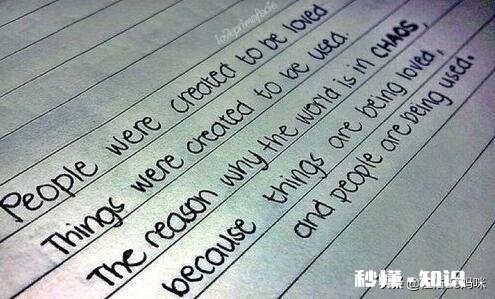 People were created to be loved
Things were created to be used.
The reason why the world is in CHAOS,
because things are being loved,
and people are being used.
秒懂·知识